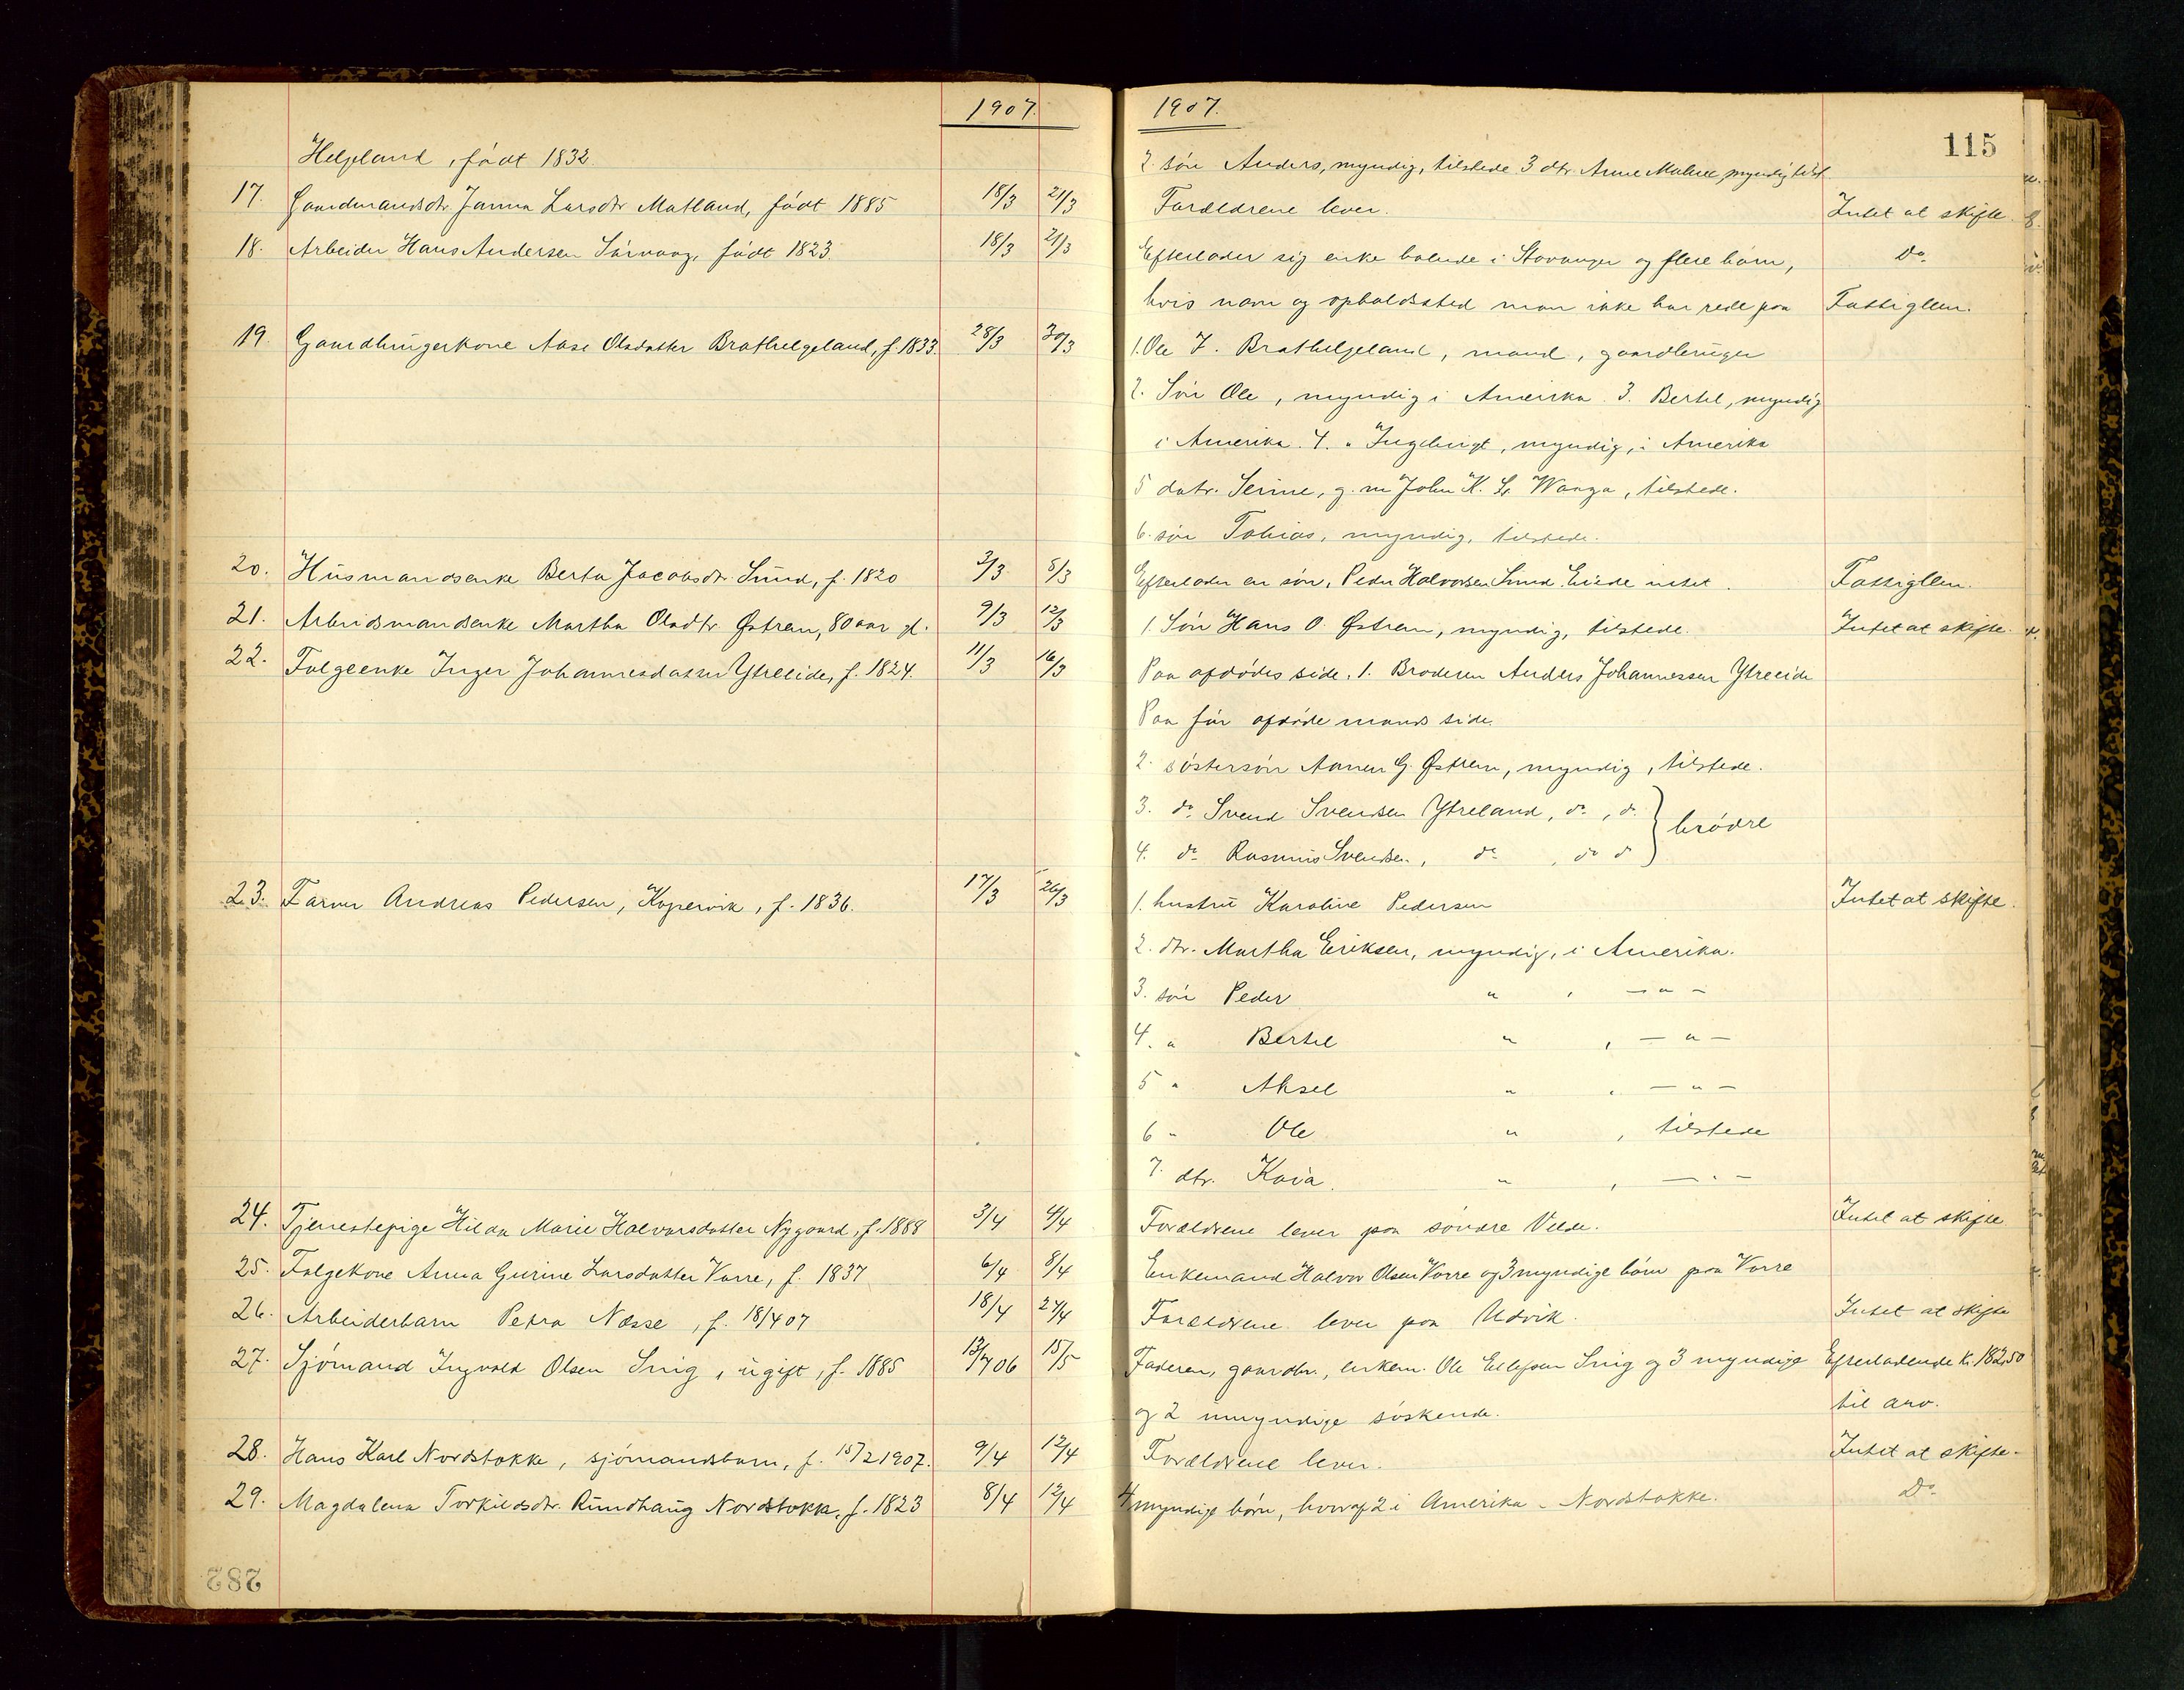 1907.
Helgeland, født 1832
17. Gaardmandsdtr. Janna Larsdtr Matland, født 1885 18/3 21/3
18. Arbeider Hans Andersen Sørvaag, født 1823. 18/3 21/3
19. Gaardbrugerkone Aase Olsdatter Brathelgeland, f. 1833. 28/3 30/3
20. Husmandsenke Berta Jacobsdtr. Sund, f. 1820 3/3 8/3
21. Arbeidsmandsenke Martha Olsdtr. Østrem, 80 aar gl. 9/3 12/3
22. Folgeenke Inger Johannesdatter Ytreeide, f. 1824. 11/3 16/3
23. Farver Andreas Pedersen, Kopervik, f. 1836. 17/3 26/3
24. Tjenestepige Hilda Marie Halvorsdatter Nygaard, f. 1888 3/4 4/4
25. Folgekone Anna Gurine Larsdatter Vorre, f. 1837 6/4 8/4
26. Arbeiderbarn Petra Næsse, f. 18/4 07 18/4 24/4
27. Sjømand Ingvald Olsen Snig, ugift, f. 1885 13/7 06 15/5
28. Hans Karl Nordstokke, sjømandsbarn, f. 15/2 1907. 9/4 12/4
29. Magdalena Torkildsdtr. Rundhaug Nordstokke, f. 1823 8/4 12/4
282
1907.
115
2. søn Anders, myndig, tilstede 3 dtr. Anne Malene, myndig, tilst
Forældrene lever. Intet at skifte.
Efterlader sig enke boende i Stavanger og flere børn, Do.
hvis navn og opholdssted man ikke har rede paa Fattiglem.
1. Ole T. Brathelgeland, mand, gaardbruger
2. Søn Ole, myndig i Amerika. 3. Bertel, myndig
i Amerika. 4. " Ingebrigt, myndig, i Amerika
5 datr. Serine, g. m John K. L. Waaga, tilstede.
6. søn Tobias, myndig, tilstede.
Efterlader en søn, Peder Halvorsen Sund. Eiede intet. Fattiglem.
1. Søn Hans O. Østrem, myndig, tilstede. Intet at skifte.
Paa afdødes side. 1. Broderen Anders Johannessen Ytreeide
Paa før afdøde mands side.
2. søstersøn Aanen G. Østrem, myndig, tilstede.
3. do. Svend Svendsen Ytreland, do., do.
brødre
4. do. Rasmus Svendsen, do, do do
1. hustru Karoline Pedersen Intet at skifte.
2. dtr. Martha Eriksen, myndig, i Amerika.
3. søn Peder " , — " —
4. " Bertel " , — " —
5 " Aksel " , — " —
6 " Ole " , tilstede
7. dtr. Kaia. " , — " —
Forældrene lever paa søndre Velde. Intet at skifte
Enkemand Halvor Olsen Vorre og 3 myndige børn paa Vorre
Forældrene lever paa Udvik. Intet at skifte
Faderen, gaardbr., enkem. Ole Ellefsen Snig og 3 myndige Efterladende k. 182,50
og 2 umyndige søskende. til arv.
Forældrene lever. Intet at skifte.
4 myndige børn, hvoraf 2 i Amerika - Nordstokke. Do.